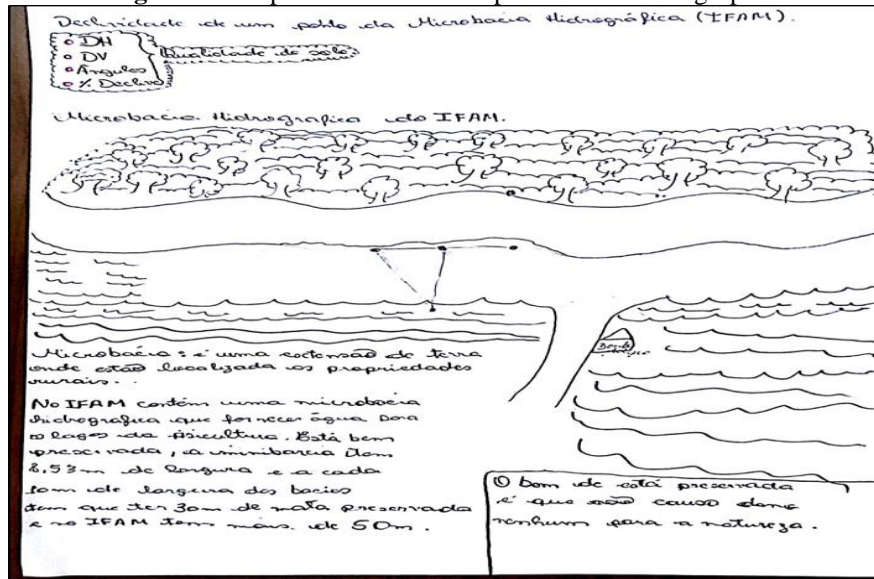 Declividade de um ponto da Microbacia Hidrográfica (IFAM).
DH
DV
Ângulos
% Declive
Qualidade do solo
Microbacia Hidrografica do IFAM.
Microbacia: é uma extensão de terra
onde estão localizada as propriedades
rurais..
No IFAM contém uma microbacia
hidrografica que fornece água para
o lagos da Piscicultura. Está bem
preservada, a minibacia item
8,53m de largura e a cada
10m de largura das bacias
tem que ter 30m de mata preservada
e no IFAM tem mais de 50m.
O bom de está preservada
é que não causa dano
nenhum para a natureza.